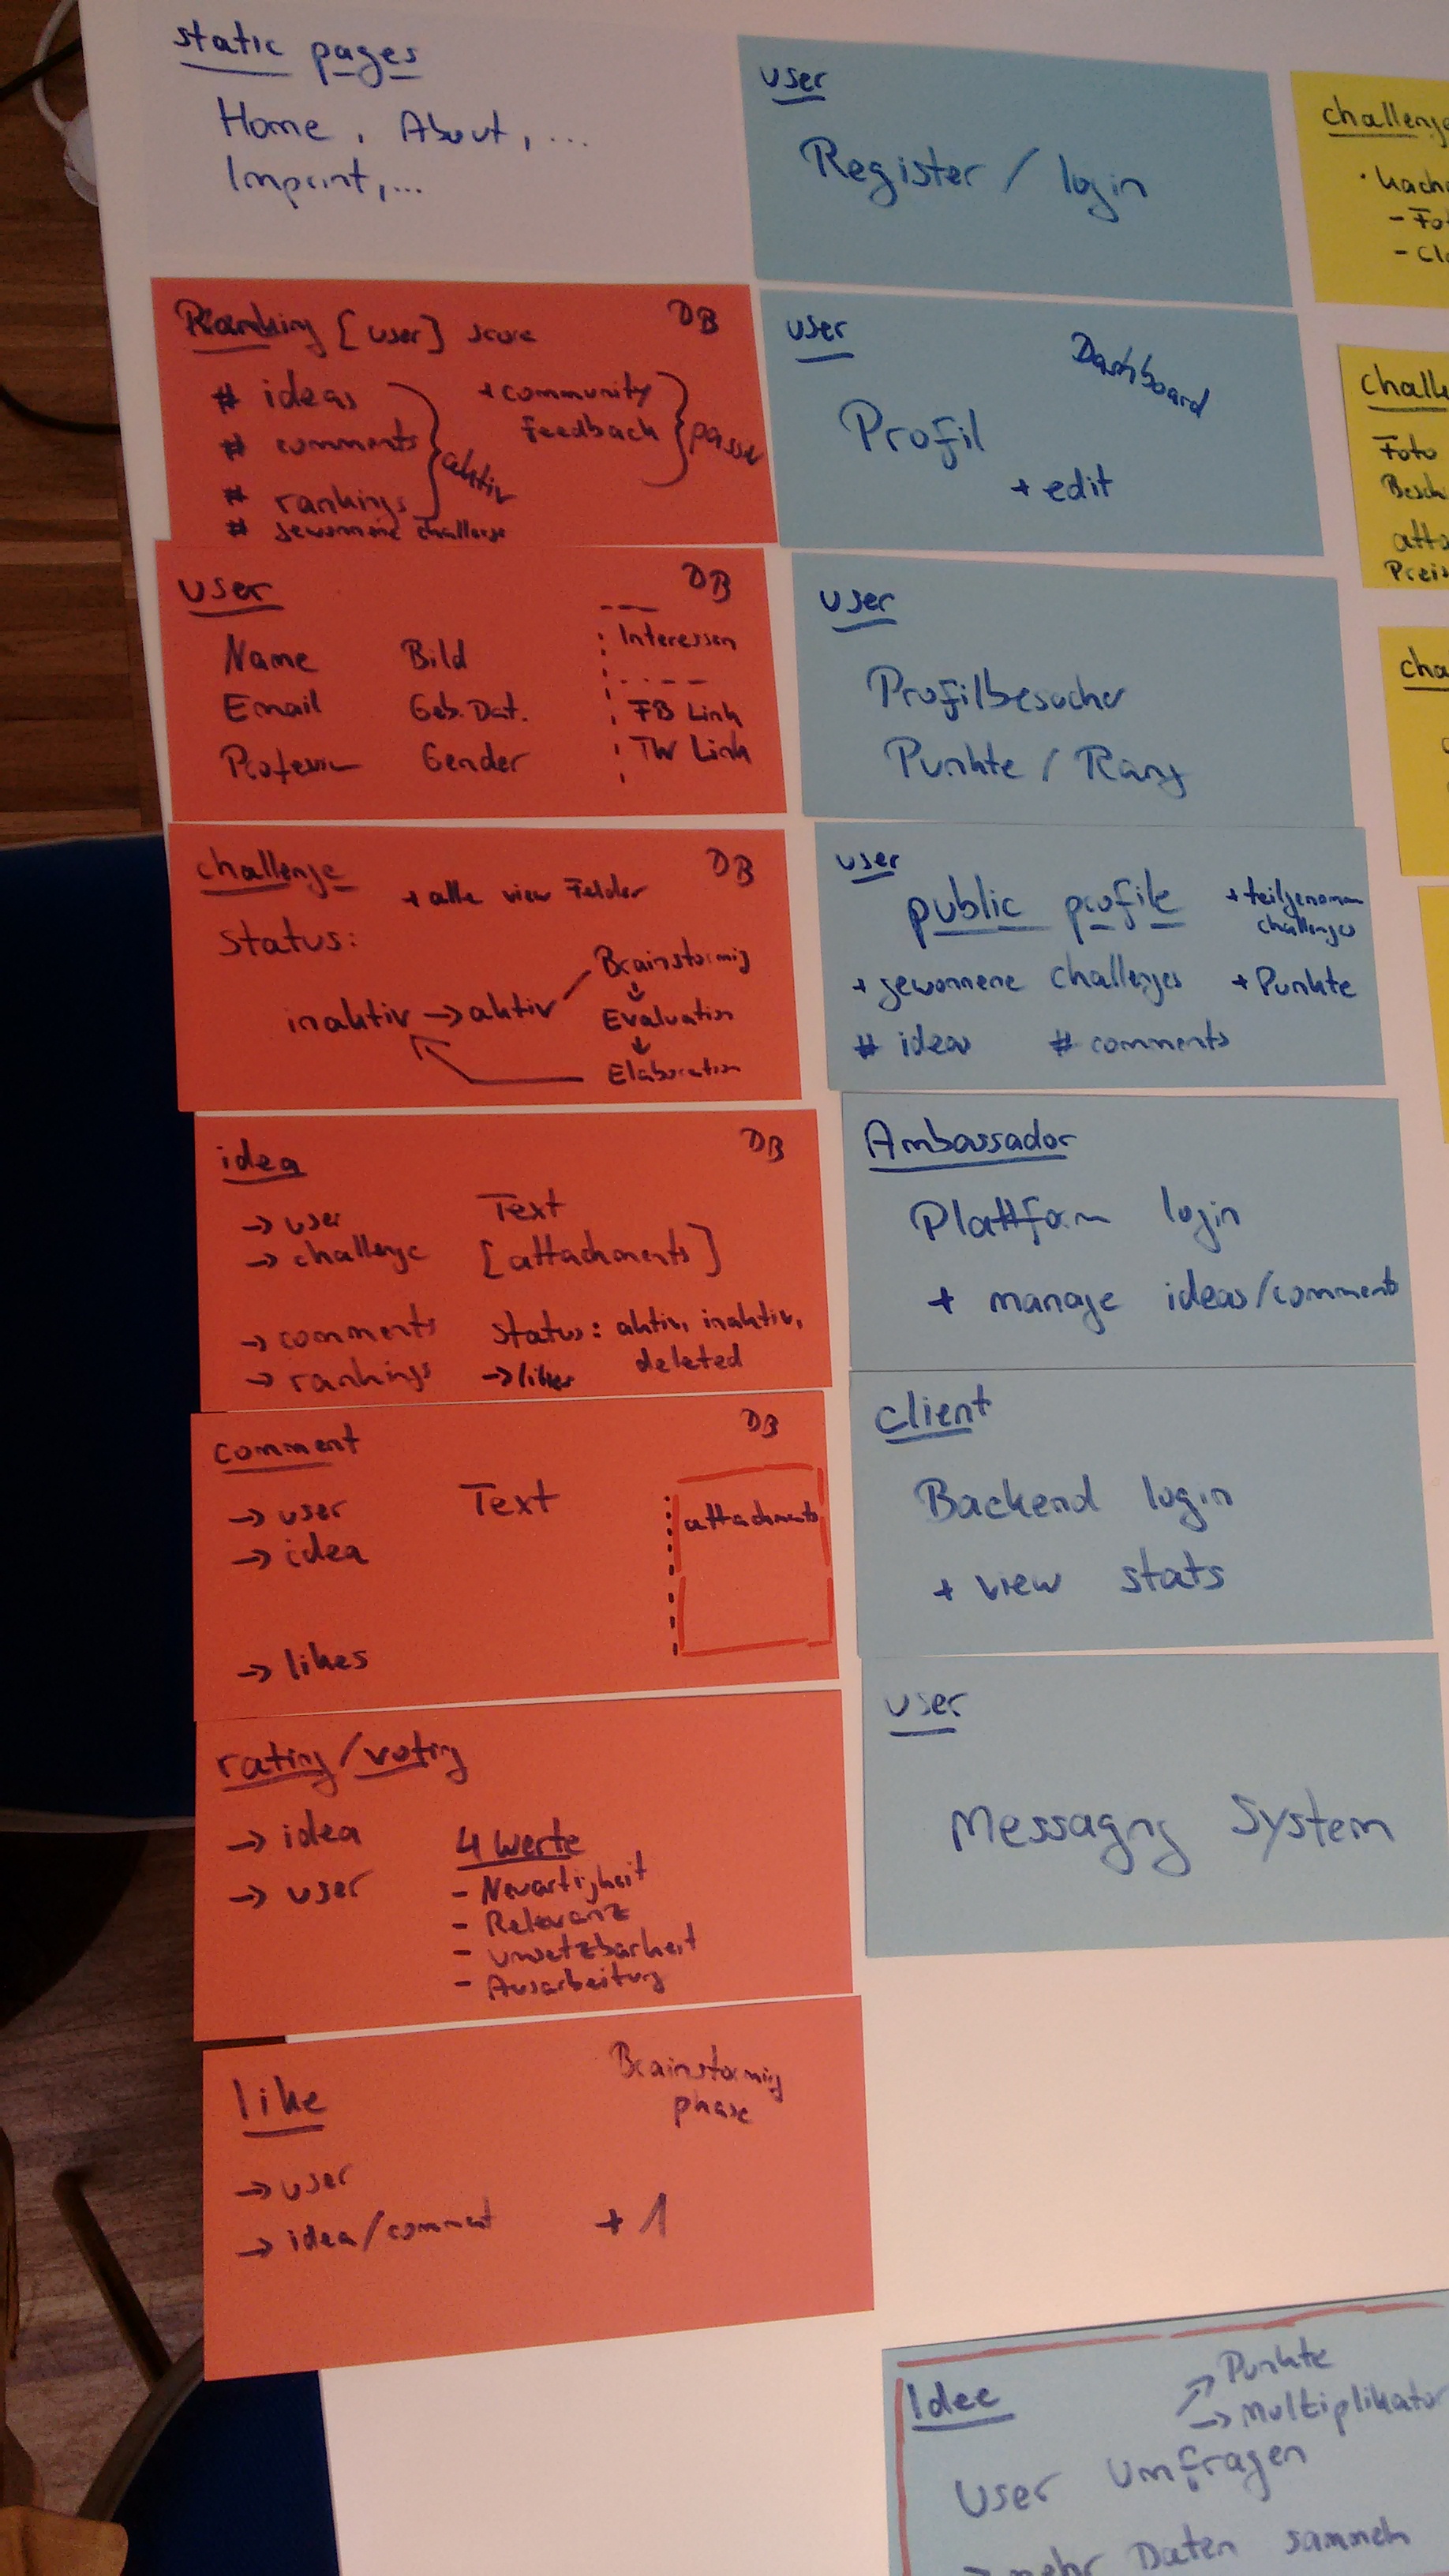 static pages
Home, About, ...
Imprint, ...
Ranking [user] score DB
# ideas
# comments
# rankings
# gewonnene challenge
aktiv
+ community
feedback
passiv
user DB
Name Bild
Email Geb. Dat.
Profession Gender
Interessen
FB Link
TW Link
challenge DB
+ alle view Felder
Status:
inaktiv → aktiv
Brainstorming
↓
Evaluation
↓
Elaboration
idea DB
→ user Text
→ challenge [attachments]
→ comments status: aktiv, inaktiv,
deleted
→ rankings → likes
comment DB
→ user Text
→ idea
attachments
→ likes
rating/voting
→ idea
→ user
4 Werte
- Neuartigkeit
- Relevanz
- Umsetzbarkeit
- Ausarbeitung
like
Brainstorming
phase
→ user
→ idea/comment +1
user
Register / login
user
Dashboard
Profil
+ edit
user
Profilbesucher
Punkte / Rang
user
public profile
+ teilgenomm
challenges
+ gewonnene challenges + Punkte
# ideas # comments
Ambassador
Plattform login
+ manage ideas/comments
client
Backend login
+ view stats
user
Messaging System
Idee
↗ Punkte
→ Multiplikator
User Umfragen
→ mehr Daten sammeln
challenge
- Fo
- Cl
chall
Foto
Besch
atta
Preis
cha